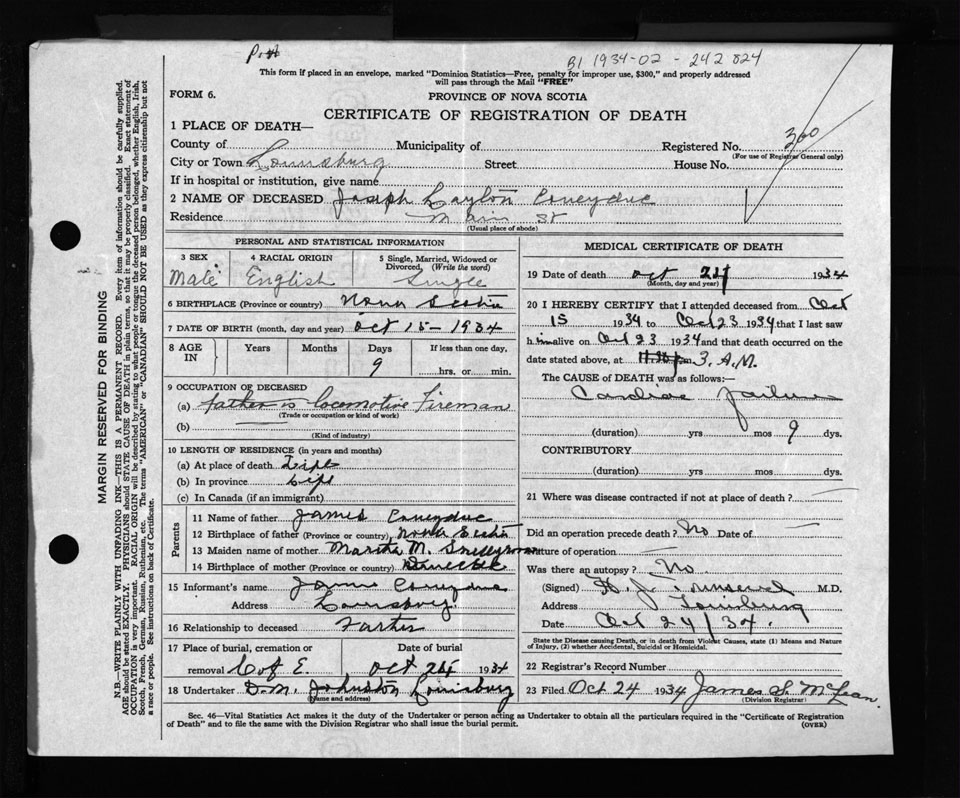 B1 1934-02 - 242824
This form if placed in an envelope, marked "Dominion Statistics—Free, penalty for improper use, $300," and properly addressed
will pass through the Mail "FREE"
FORM 6.
PROVINCE OF NOVA SCOTIA
CERTIFICATE OF REGISTRATION OF DEATH
1 PLACE OF DEATH—
County of Municipality of Registered No. 360
(For use of Registrar General only)
City or Town Louisburg Street House No.
If in hospital or institution, give name
2 NAME OF DECEASED Joseph Layton
Residence Main St
(Usual place of abode)
PERSONAL AND STATISTICAL INFORMATION
3 SEX 4 RACIAL ORIGIN 5 Single, Married, Widowed or
Divorced, (Write the word)
Male English Single
6 BIRTHPLACE (Province or country) Nova Scotia
7 DATE OF BIRTH (month, day and year) Oct 15 - 1934
8 AGE IN Years Months Days If less than one day,
9 hrs. or min.
9 OCCUPATION OF DECEASED
(a) father is locomotive Fireman
(Trade or occupation or kind of work)
(b)
(Kind of industry)
10 LENGTH OF RESIDENCE (in years and months)
(a) At place of death Life
(b) In province Life
(c) In Canada (if an immigrant)
Parents
11 Name of father James
12 Birthplace of father (Province or country) Nova Scotia
13 Maiden name of mother Martha M.
14 Birthplace of mother (Province or country)
15 Informant's name James
Address Louisburg
16 Relationship to deceased Father
17 Place of burial, cremation or Date of burial
removal C of E. Oct 24 1934
18 Undertaker D. M. Johnston Louisburg
(Name and address)
MEDICAL CERTIFICATE OF DEATH
19 Date of death Oct 24 1934
(Month, day and year)
20 I HEREBY CERTIFY that I attended deceased from Oct
15 1934 to Oct 23 1934 that I last saw
h im alive on Oct 23 1934 and that death occurred on the
date stated above, at 3. A.M.
The CAUSE of DEATH was as follows:—
Cardiac Failure
(duration) yrs mos 9 dys.
CONTRIBUTORY
(duration) yrs mos dys.
21 Where was disease contracted if not at place of death?
Did an operation precede death? No Date of
Nature of operation
Was there an autopsy? No.
(Signed) M.D.
Address Louisburg
Date Oct 24/34.
State the Disease causing Death, or in death from Violent Causes, state (1) Means and Nature
of Injury, (2) whether Accidental, Suicidal or Homicidal.
22 Registrar's Record Number
23 Filed Oct 24 1934 James S. McLean.
(Division Registrar)
Sec. 46—Vital Statistics Act makes it the duty of the Undertaker or person acting as Undertaker to obtain all the particulars required in the "Certificate of Registration
of Death" and to file the same with the Division Registrar who shall issue the burial permit. (OVER)
MARGIN RESERVED FOR BINDING
N.B.—WRITE PLAINLY WITH UNFADING INK—THIS IS A PERMANENT RECORD. Every item of information should be carefully supplied.
AGE should be stated EXACTLY. PHYSICIANS should STATE CAUSE OF DEATH in plain terms, so that it may be properly classified. Exact statement of
OCCUPATION is very important. RACIAL ORIGIN will be described by stating to what people or tongue the deceased person belonged, whether English, Irish,
Scotch, French, German, Russian, Ruthenian, etc. The terms "AMERICAN" or "CANADIAN" SHOULD NOT BE USED as they express citizenship but not
a race or people. See instructions on back of Certificate.